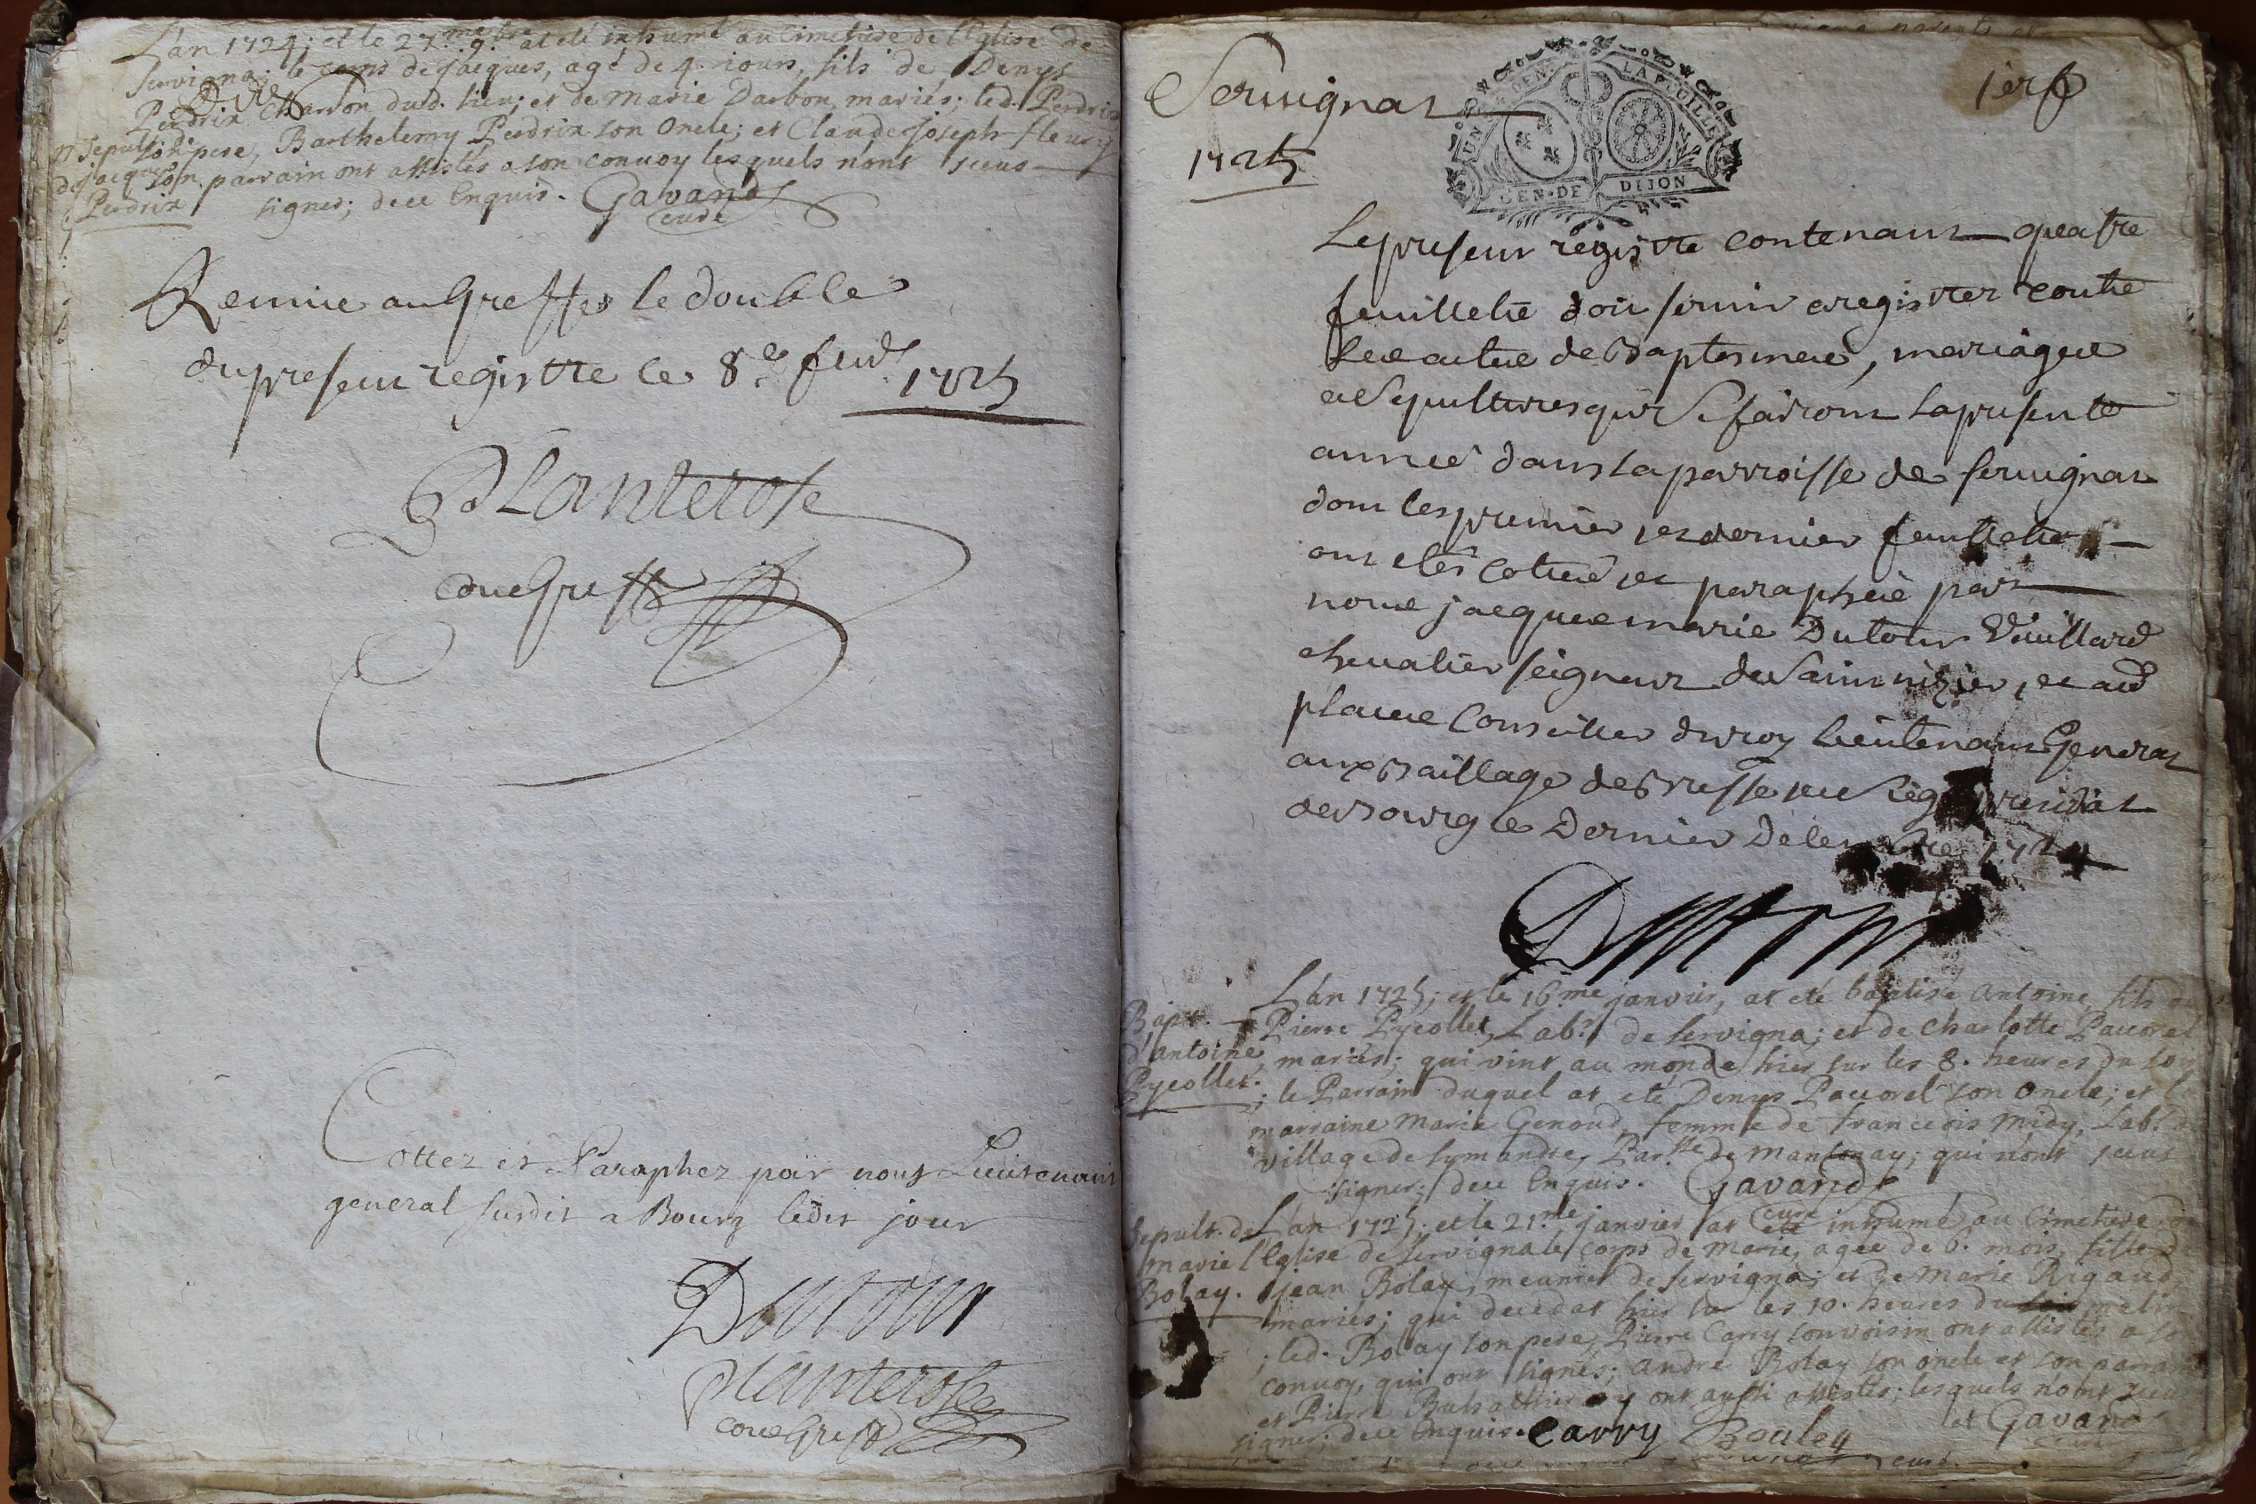 L'an 1724; et le 27.me 9.bre at eté inhumé au Cimetiere de l'Eglise de
Servigna; le corps de jacques, agé de 4. jours, fils de Denys
Perdrix Charron dud. lieu; et de Marie Darbon, mariés; led. Perdrix
son pere, Barthelemy Perdrix son Oncle; et Claude joseph fleury
son parrain ont assistés a son convoy lesquels n'ont sceus
signer; de ce Enquis. Gavand
curé
Sepult.
de jacques
Perdrix
Remis au Greffe le double
du present registre ce 8.e feud. 1725
Planterose
Cottez et Paraphez par nous Lieutenant
general susdit a Bourg ledit jour
Dutour
Planterose
Servignat
1725
1er f
GEN · DE DIJON
Le present registre contenant quatre
feuillets doit servir a registrer toutte
les actes de Baptesmes, mariages
et Sepultures qui se fairont la presente
année dans la parroisse de servignat
dont les premier et dernier feuillets
ont etés cottés et paraphés par
nous jacques marie Dutour Vuillard
chevalier seigneur de Saint nizier, et aud
places Conseiller du roy Lieutenant General
aux Baillage de Bresse et Siege Presidial
de Bourg le Dernier Decembre 1724
Dutour
Bapt.
d'Antoine
Pycollet.
L'an 1725; et le 16.me janvier, at eté baptisé Antoine, fils de
Pierre Pycollet, Lab.r de Servigna; et de Charlotte Paccorel
mariés; qui vint au monde hier sur les 8. heures du soy
; le Parrain duquel at eté Denys Paccorel son Oncle; et la
marraine Marie Genoud, femme de francois Midy, Lab.r du
village de Lymandre, Par.sse de Mantenay; qui n'ont sceus
signer; de ce Enquis. Gavand
curé
Sepult. de
marie
Bolay.
L'an 1725; et le 21.me janvier at eté inhumé au Cimetiere de
l'Eglise de Servigna le corps de Marie, agée de 6. mois, fille de
jean Bolay, meunier de Servigna; et de Marie Rigaud
mariés; qui decedat hier sur les 10. heures du matin
; led. Bolay son pere, Pierre Carry son voisin ont assistés a son
convoy, qui ont signés; André Bolay son oncle et son parrain
et Pierre ont aussi assistés; lesquels n'ont sceu
signer; de ce Enquis. Carry Bouley et Gavand
curé